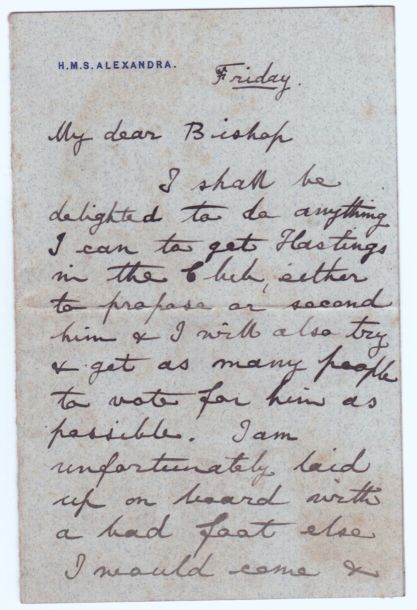 H.M.S. ALEXANDRA.
Friday.
My dear Bishop
I shall be
delighted to do anything
I can to get Hastings
in the Club, either
to propose or second
him & I will also try
& get as many people
to vote for him as
possible. I am
unfortunately laid
up on board with
a bad foot else
I would come &